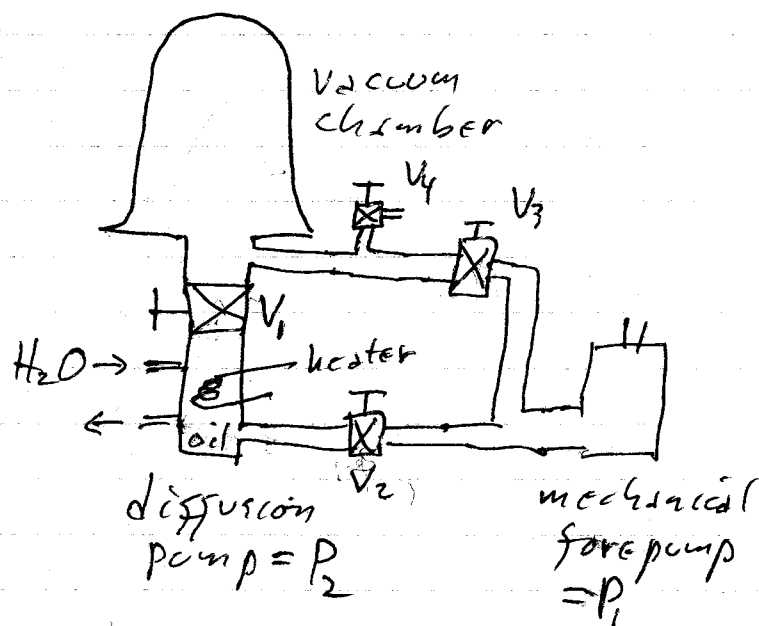 vacuum
chamber
V4
V3
V1
H2O →
heater
←
oil
V2
diffusion
pump = P2
mechanical
forepump
= P1